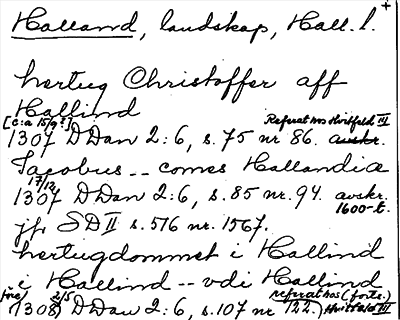 Halland, landskap, Hall. l. +
hertug Christoffer aff
Hallind
[c:a 15/9?] Referat hos Hvitfeld III
1307 DDan 2:6, s. 75 nr 86. avskr.
Jacobus -- comes Hallandiæ
17/12
1307 DDan 2:6, s. 85 nr. 94. avskr. 1600-t.
jfr SD II s. 516 nr. 1567.
hertugdommet i Hallind
i Hallind -- vdi Hallind
(före) 2/5 referat hos (forts.)
1308) DDan 2:6, s. 107 nr 122. Hvitfeld III